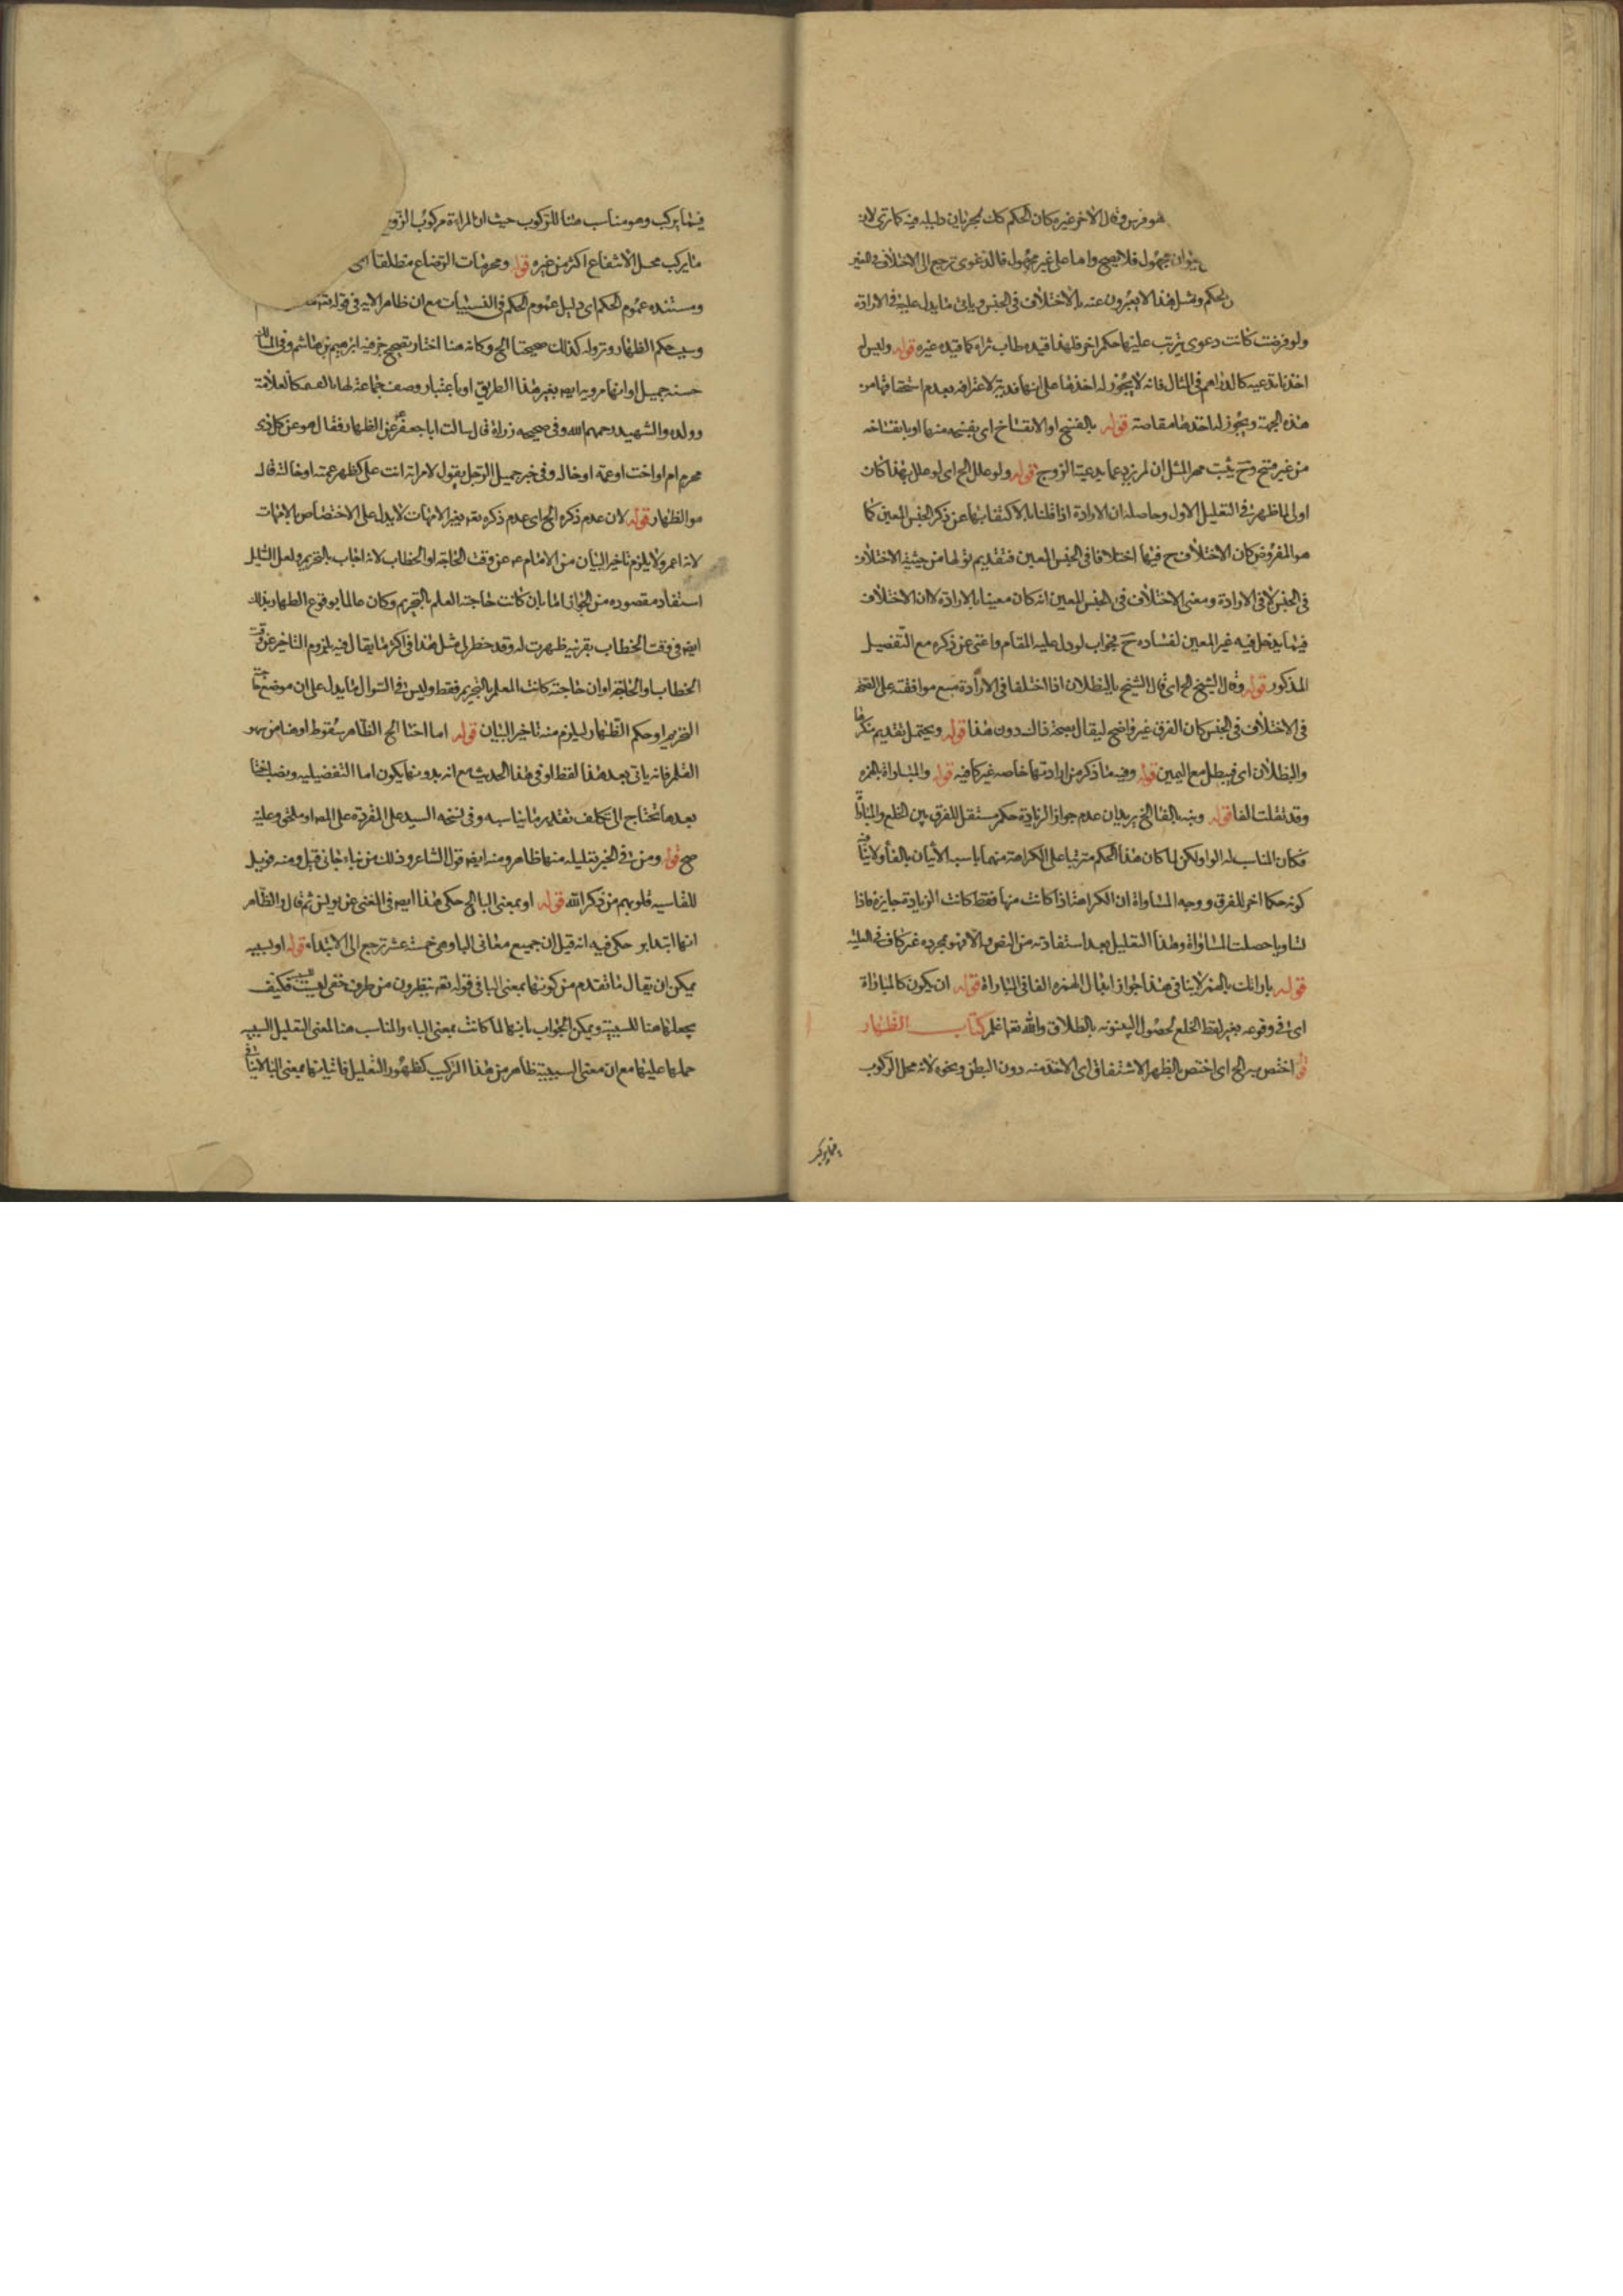 هو فرس وقال الاخر غيره كان الحكم كك لجريان دليله فيه كما ترى لانه
حيوان مجهول فلا يصح واما على غير مجهول فالدعوى ترجع الى الاختلاف في المهر
والحكم ومثل هذا لا يعبرون عنه بالاختلاف في الجنس وياتي ما يدل عليه في الارادة
ولو فرضت كانت دعوى يترتب عليها حكم اخر فلهذا قيده طاب ثراه كما قيده غيره قوله وليس له
اخذ ما تدعيه كالدراهم في المثال فانه لا يجوز له اخذها على انها فدية لاعترافه بعدم استحقاقها من
هذه الجهة ويجوز له اخذها مقاصة قوله بالفسخ او الانفساخ اى بفسخه منها او بانفساخه
من غير فسخ وح يثبت مهر المثل ان لم يزد عما يدعيه الزوج قوله ولو علل الخ اى لو علل بهذا كان
اولى لما ظهر في التعليل الاول وحاصله ان الارادة اذا قلنا بالاكتفاء بها عن ذكر الجنس المعين كما
هو المفروض كان الاختلاف ح فيها اختلافا في الجنس المعين فتقديم قولها من حيثية الاختلاف
في الجنس لا في الارادة ومعنى الاختلاف في الجنس المعين انه كان معينا بالارادة لا ان الاختلاف
فيما يدخل فيه غير المعين لفساده ح بجواب لو دل عليه المقام واغنى عن ذكره مع التفصيل
المذكور قوله وقال الشيخ الخ اى قال الشيخ بالبطلان اذا اختلفا في الارادة مع موافقته على
في الاختلاف في الجنس كان الفرق غير واضح ليقال بصحة ذلك دون هذا قوله ويحتمل تقديم منكرها
والبطلان اى فيبطل مع اليمين قوله وفيه ما ذكر من ارادتها خاصه غير كافيه قوله والمباراة بالهمزه
وقد تقلب الفا قوله ونبه بالفا الخ يريد ان عدم جواز الزيادة حكم مستقل للفرق بين الخلع والمباراة
فكان المناسب له الواو لكن لما كان هذا الحكم مترتبا على الكراهة منهما ناسب الاتيان بالفا ولا ينافيه
كونه حكما اخر للفرق ووجه المساواة ان الكراهة اذا كانت منها فقط كانت الزيادة جايزه فاذا
تساويا حصلت المساواة وهذا التعليل بعد استفادته من النص والا فهو بمجرده غير كاف في العلية
قوله باراتك بالهمز لا ينافي هذا جواز ابدال الهمزه الفا في المباراة قوله ان يكون كالمباراة
اى في وقوعه بغير لفظ الخلع لحصول البينونه بالطلاق والله تعا اعلم كتاب الظهار
قوله اختص به الخ اى اختص بالظهر الاشتقاق اى الاخذ منه دون البطن ونحوه لانه محل الركوب
فيما يركب
فيما يركب وهو مناسب هنا للركوب حيث ان المراة مركوب الزوج
ما يركب محل الانتفاع اكثر من غيره قوله ومحرمات الرضاع مطلقا الخ
ومستنده عموم الحكم اى دليل عموم الحكم في النسبيات مع ان ظاهر الايه في قوله
وسبب حكم الظهار ونزوله كذلك صحيحتا الخ وكانه هنا اختار تصحيح خبر فيه ابرهيم بن هاشم وفي
حسنه جميل او انها مرويه ايضا بغير هذا الطريق او باعتبار وصف جماعة لها بالصحه كالعلامة
وولده والشهيد رحمهم الله وفي صحيحه زراره قال سالت ابا جعفر ع عن الظهار فقال هو عن كل ذى
محرم ام او اخت او عمة او خاله وفي خبر جميل الرجل يقول لامراته انت على كظهر عمته او خالته قال
هو الظهار قوله لان عدم ذكره الخ اى عدم ذكره تعا غير الامهات لا يدل على الاختصاص بالامهات
لانه اعم ولا يلزم تاخير البيان من الامام ع عن وقت الحاجة او الخطاب لانه اجاب بالتحريم ولعل السايل
استفاد مقصوده من الجواز اما بان كانت حاجته العلم بالتحريم وكان عالما بوقوع الظهار بذلك
ايضا في وقت الخطاب بقرينه ظهرت له وقد خطر لى مثل هذا في اكثر ما يقال فيه بلزوم التاخير عن وقت
الخطاب او الحاجة او ان حاجته كانت العلم بالتحريم فقط وليس في السوال ما يدل على ان موضع حاجته
التحريم او حكم الظهار ليلزم منه تاخير البيان قوله اما اختا الخ الظاهر سقوط او هنا من سهو
القلم فانه ياتي بعد هذا لفظ او في هذا الحديث مع انه بدونها يكون اما التفضيليه ونصب اختا
بعدها تحتاج الى تكلف تقدير ما يناسبه وفي نسخه السيد على المقروة على المص او ملحق وعليه
صح قوله ومن في الخبر تعليله منها ظاهر ومنه ايضا قول الشاعر وذلك من نباء جاني قيل ومنه فويل
للقاسيه قلوبهم من ذكر الله قوله او بمعنى البا الخ حكى هذا ايضا في المغنى عن يونس ثم قال والظاهر
انها ابتدا و حكى فيه انه قيل ان جميع معاني البا وهي خمسة عشر ترجع الى الابتداء قوله او لسببه
يمكن ان يقال ما تقدم من كونها بمعنى البا في قوله تعه ينظرون من طرف خفى ليست للسببيه فكيف
يجعلها هنا للسببيه ويمكن الجواب بانها لما كانت بمعنى الباء والمناسب هنا لمعنى التعليل السببيه
حملها عليها مع ان معنى السببيه ظاهر من هذا التركيب كظهور التعليل فاتيانها بمعنى البا لا ينافي